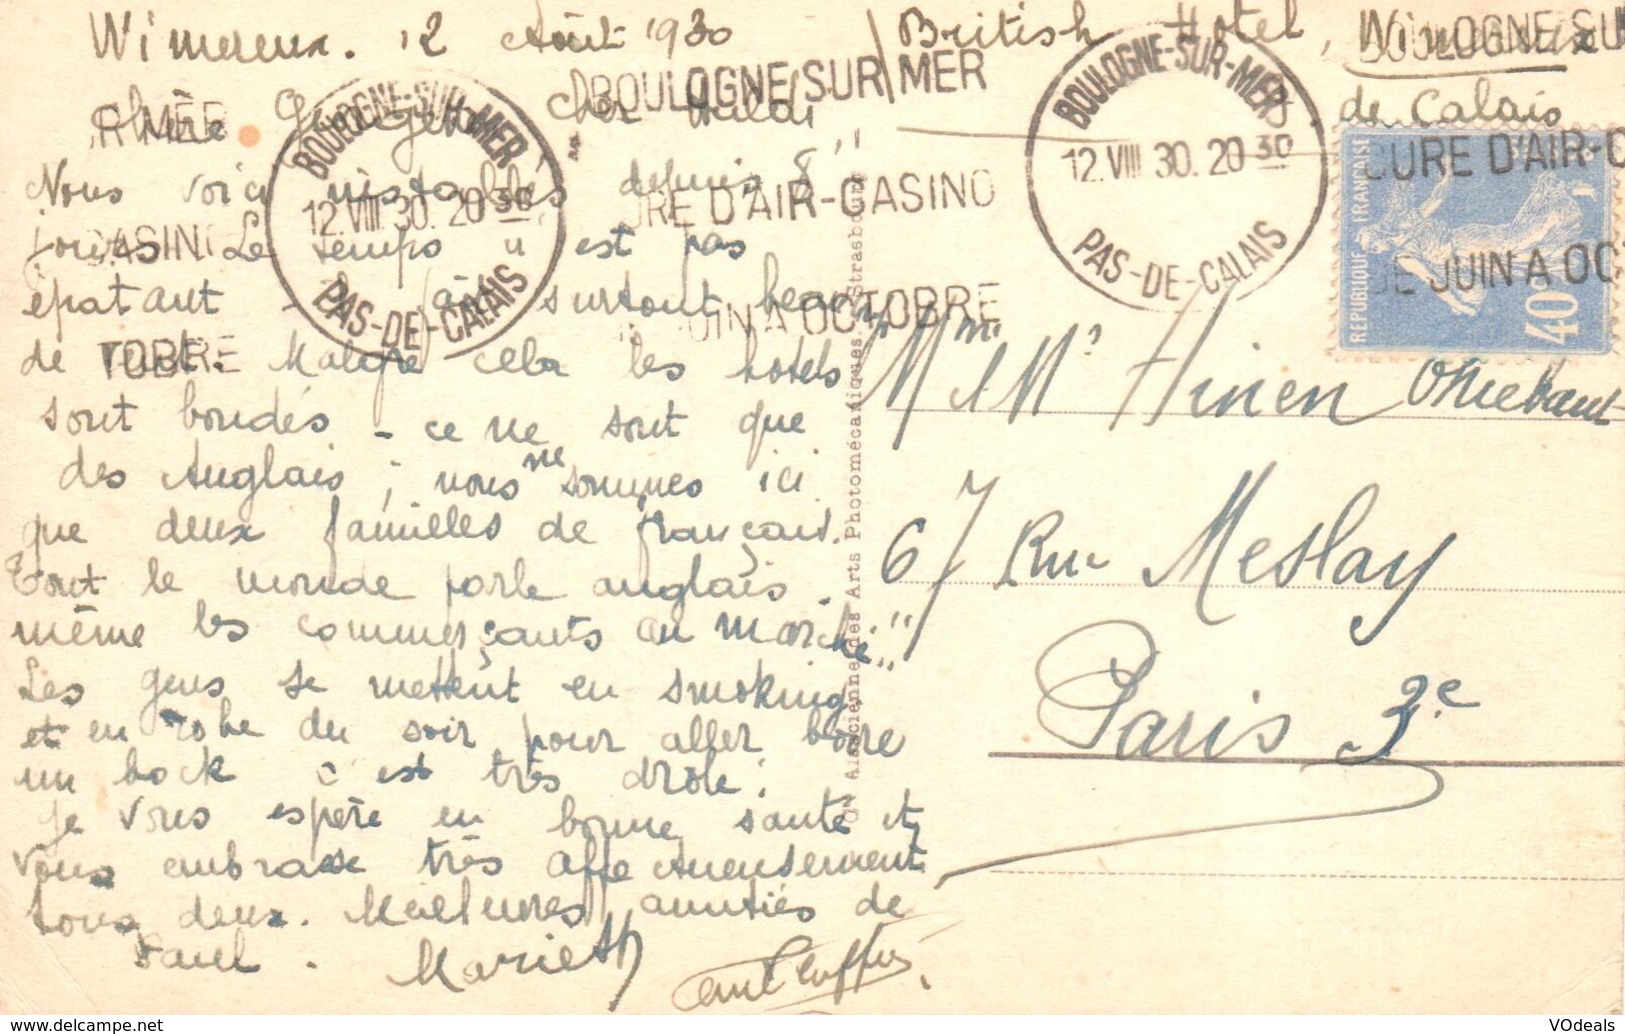 Wimereux. 12 Août 1930
British Hotel, Wimereux
de Calais
Chère Georgette, cher
Nous voici installés depuis 8
jours. Le temps n'est pas
épatant - surtout beaucoup
de vent. Malgré cela les hotels
sont bondés - ce ne sont que
des Anglais ; nous ne sommes ici
que deux familles de français.
Tout le monde parle anglais.
même les commerçants au marché"
Les gens se mettent en smoking
et en robe du soir pour aller boire
un bock c'est très drôle!
Je vous espère en bonne santé et
vous embrasse très affectueusement
tous deux. Meilleures amitiés de
Paul. Marieth
BOULOGNE-SUR-MER
12.VIII 30. 20 30
PAS-DE-CALAIS
BOULOGNE SUR MER
CURE D'AIR-CASINO
DE JUIN A OCTOBRE
BOULOGNE-SUR-MER
12.VIII 30. 20 30
PAS-DE-CALAIS
BOULOGNE SU
CURE D'AIR-C
DE JUIN A OC
RMÉE
CASINO
TOBRE
REPUBLIQUE FRANCAISE
40c
Alsacienne des Arts Photomécaniques, Strasbourg
Mme & Mr Hinen
67 Rue Meslay
Paris 3e
VDeals
www.delcampe.net